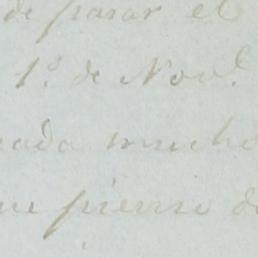 de pasar el
1º de Novˡ.
cada mucho
que pienso de